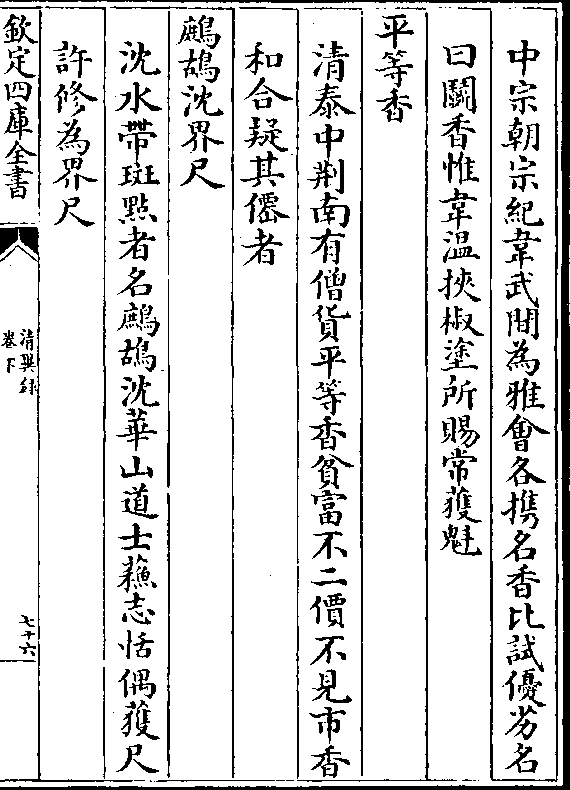 中宗朝宗紀韋武間為雅會各携名香比試優劣名
曰鬭香惟韋溫挾椒塗所賜常獲魁
平等香
清泰中荆南有僧貨平等香貧富不二價不見市香
和合疑其僊者
鷓鴣沈界尺
沈水帶斑點者名鷓鴣沈華山道士蘓志恬偶獲尺
許修為界尺
欽定四庫全書
清異録
卷下
七十六